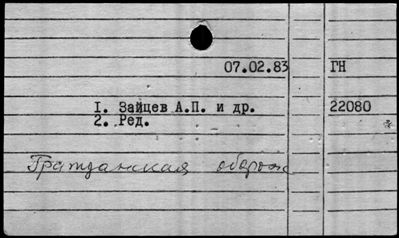 07.02.83 ГН
1. Зайцев А.П. и др. 22080
2. Ред.
Гражданская оборона